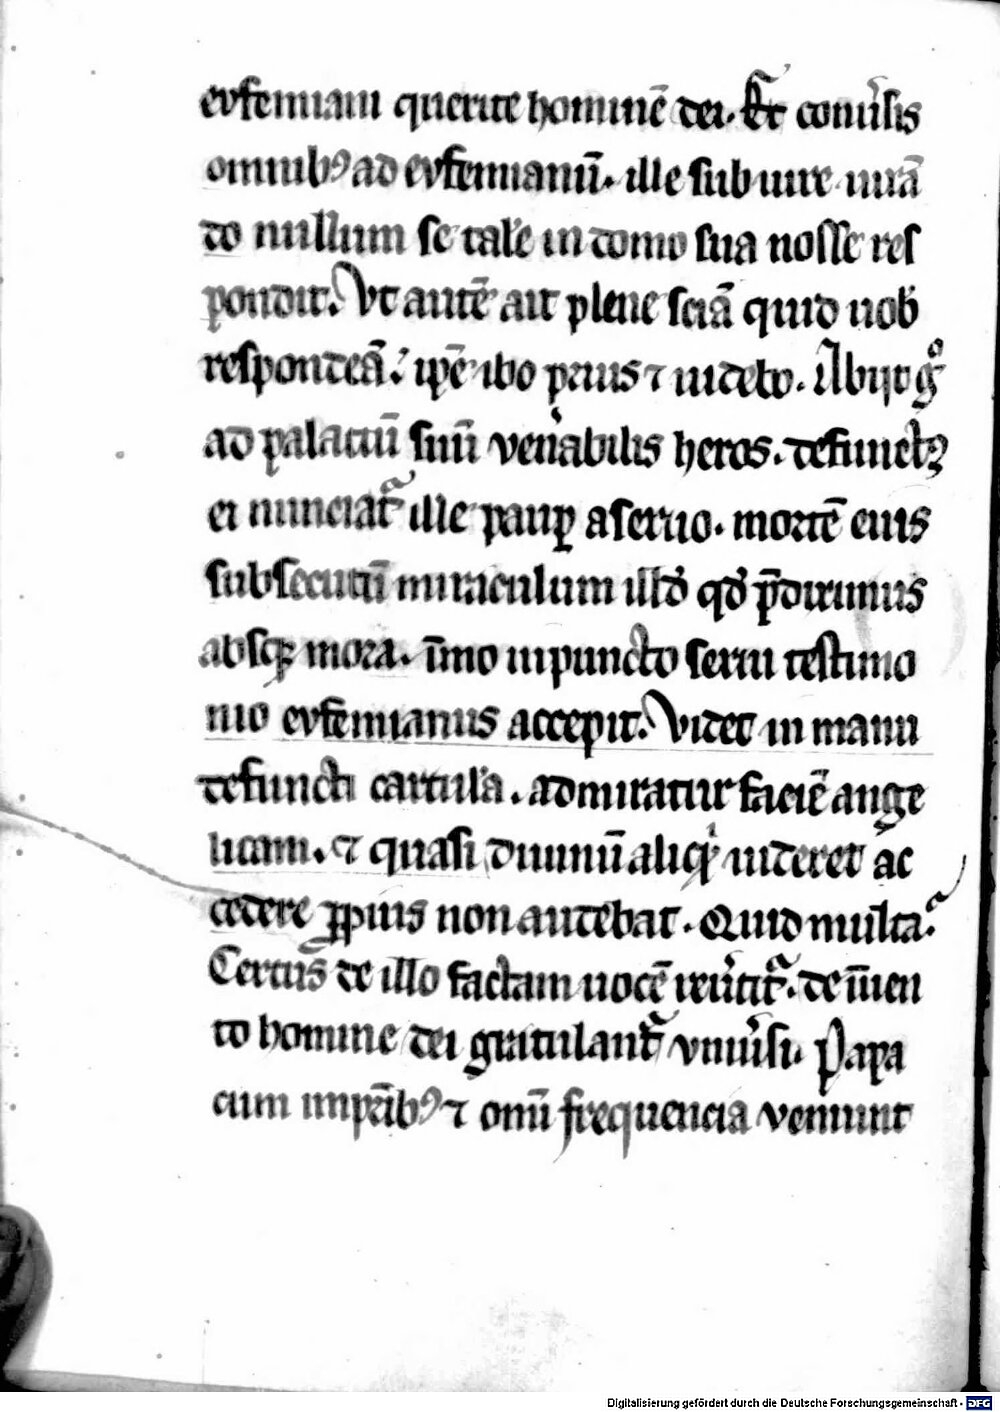 eufemiani querite hominē dei. Et conuͥsis
omnibꝰ ad eufemianū. ille sub iure iurā
do nullum se tale in domo sua nosse res
pondit. Vt autē ait plene sciā quid uob
respondeā. ip̄e ibo prius ⁊ uidebo. Abijt gͦ
ad palatiū suū venͥabilis heros. defunctꝰ
ei nunciatᷓ ille paup̲ a seruo. mortē eius
subsecutū miraculum illd̓ qd̓ p̄diximus
absqꝫ mora. īmo in puncto serui testimo
nio eufemianus accepit. Videt in manu
defuncti cartulā. admiratur faciē ange
licam. ⁊ quasi diuinū aliqͥd uideret ac
cedere ꝓpius non audebat. Quid multaᷓ.
Certus de illo factam uocē reuͥtitᷓ. de inuen
to homine dei gratulantᷓ vniuͥsi. Papa
cum imp̲atͥibꝰ ⁊ omͥū frequencia veniunt
Digitalisierung gefördert durch die Deutsche Forschungsgemeinschaft - DFG